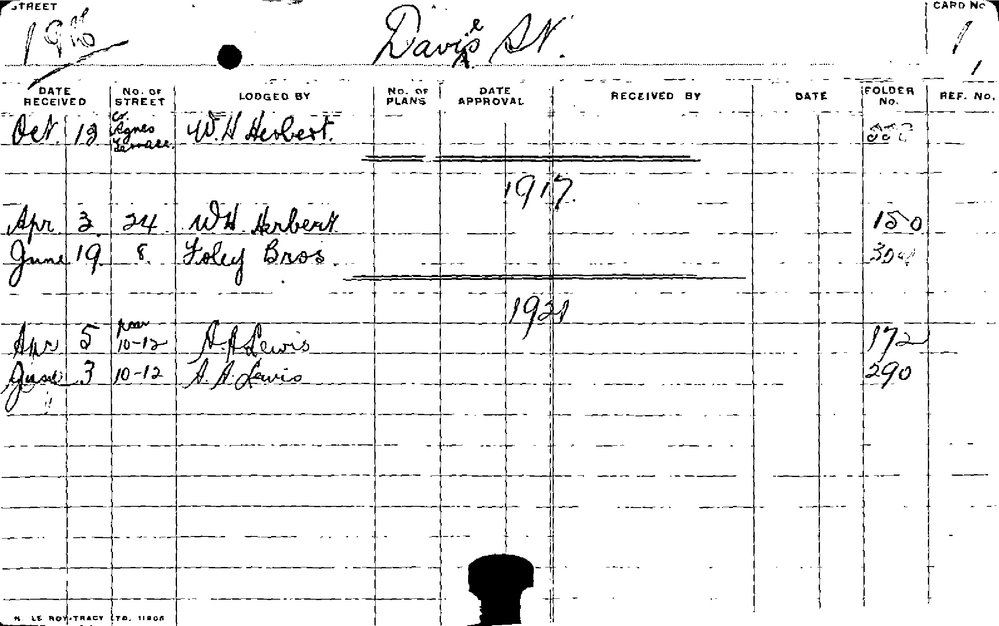 STREET
Davies St.
CARD No
1
1
DATE RECEIVED
No. OF STREET
LODGED BY
No. OF PLANS
DATE APPROVAL
RECEIVED BY
DATE
FOLDER No.
REF. No.
Oct. 12 Co. Agnes Terrace W. H Herbert.
1917
Apr 3 24 W H Herbert 150
June 19 8. Foley Bros.
1921
Apr 5 rear 10-12 A. A Lewis 172
June 3 10-12 A. A. Lewis 290
LE ROY-TRACY LTD. 11805